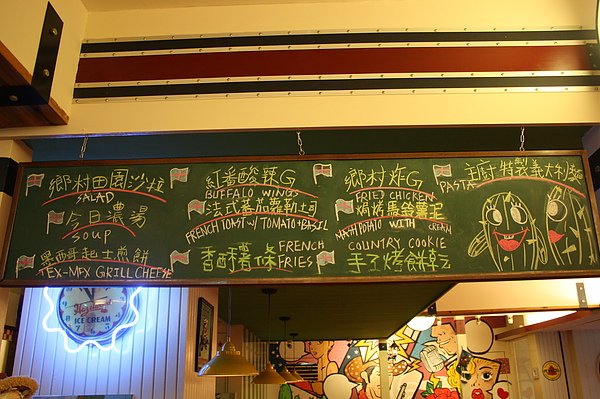 鄉村田園沙拉
SALAD
今日濃湯
SOUP
墨西哥起士煎餅
TEX-MEX GRILL CHEESE
紅番酸辣G
BUFFALO WINGS
法式蕃茄蘿勒土司
FRENCH TOAST W/ TOMATO+BASIL
香酥薯條 FRENCH FRIES
鄉村炸G
FRIED CHICKEN
焗烤蘑菇薯泥
MASH POTATO WITH CREAM
COUNTRY COOKIE
手工烤餅乾
主廚特製義大利麵
PASTA
ICE CREAM